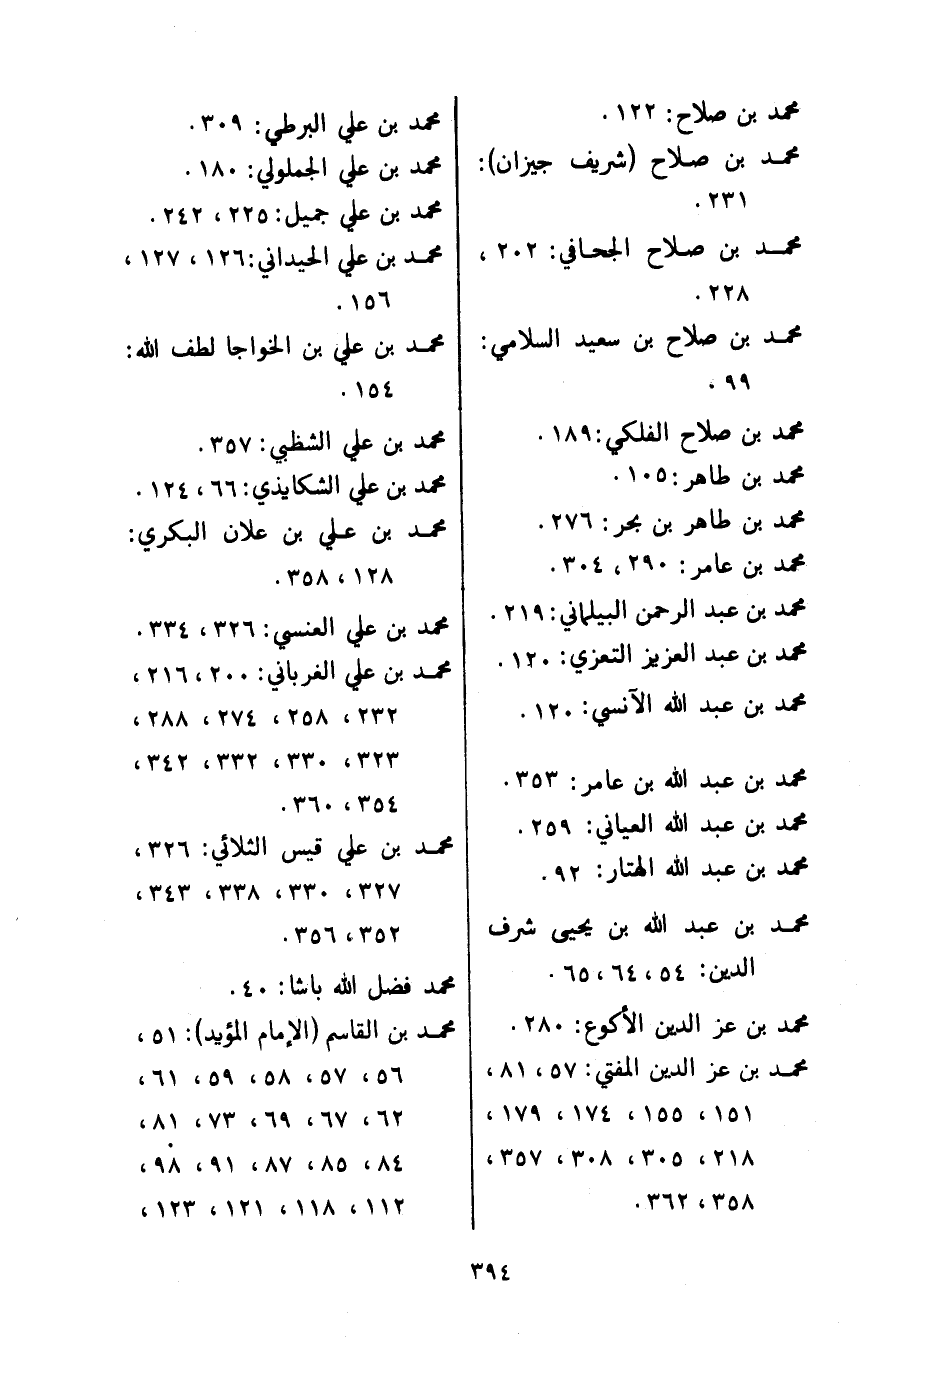 محمد بن صلاح: ١٢٢.
محمـد بن صـلاح (شريف جيزان):
٢٣١.
محمـد بن صـلاح الجحـافي: ٢٠٢ ،
٢٢٨.
محمـد بن صلاح بن سعيد السلامي:
٩٩.
محمد بن صلاح الفلكي: ١٨٩.
محمد بن طاهر: ١٠٥.
محمد بن طاهر بن بحر: ٢٧٦.
محمد بن عامر: ٢٩٠، ٣٠٤.
محمد بن عبد الرحمن البيلماني: ٢١٩.
محمد بن عبد العزيز التعزي: ١٢٠.
محمد بن عبد الله الآنسي: ١٢٠.
محمد بن عبد الله بن عامر: ٣٥٣.
محمد بن عبد الله العياني: ٢٥٩.
محمد بن عبد الله الهتار: ٩٢.
محمـد بن عبـد الله بن يحيى شرف
الدين: ٥٤، ٦٤، ٦٥.
محمد بن عز الدين الأكوع: ٢٨٠.
محمـد بن عز الدين المفتي: ٥٧، ٨١،
١٥١، ١٥٥، ١٧٤، ١٧٩،
٢١٨، ٣٠٥، ٣٠٨، ٣٥٧،
٣٥٨، ٣٦٢.
محمد بن علي البرطي: ٣٠٩.
محمد بن علي الجملولي: ١٨٠.
محمد بن علي جميل: ٢٢٥، ٢٤٢.
محمـد بن علي الحيداني: ١٢٦، ١٢٧،
١٥٦.
محمـد بن علي بن الخواجا لطف الله:
١٥٤.
محمد بن علي الشظبي: ٣٥٧.
محمد بن علي الشكايذي: ٦٦، ١٢٤.
محمـد بن عـلي بن علان البكري:
١٢٨، ٣٥٨.
محمد بن علي العنسي: ٣٢٦، ٣٣٤.
محمـد بن علي الغرباني: ٢٠٠، ٢١٦،
٢٣٢، ٢٥٨، ٢٧٤، ٢٨٨،
٣٢٣، ٣٣٠، ٣٣٢، ٣٤٢،
٣٥٤، ٣٦٠.
محمـد بن علي قيس الثلائي: ٣٢٦،
٣٢٧، ٣٣٠، ٣٣٨، ٣٤٣،
٣٥٢، ٣٥٦.
محمد فضل الله باشا: ٤٠.
محمـد بن القاسم (الإمام المؤيد): ٥١،
٥٦، ٥٧، ٥٨، ٥٩، ٦١،
٦٢، ٦٧، ٦٩، ٧٣، ٨١،
٨٤، ٨٥، ٨٧، ٩١، ٩٨،
١١٢، ١١٨، ١٢١، ١٢٣،
٣٩٤